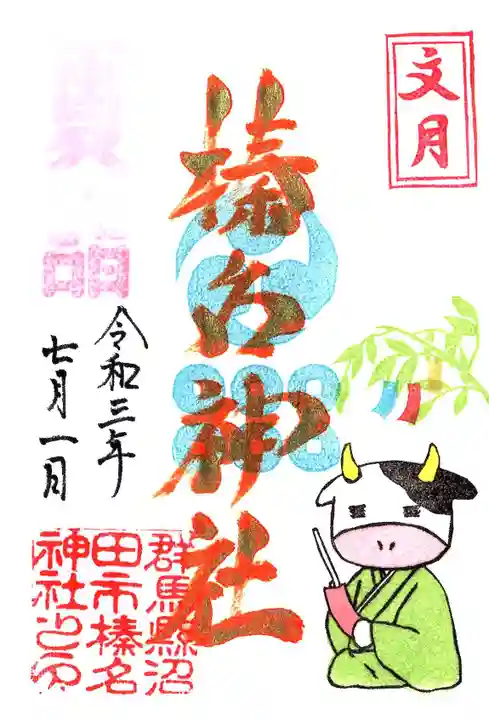 文月
榛名神社
令和三年
七月一日
群馬縣沼
田市榛名
神社之印